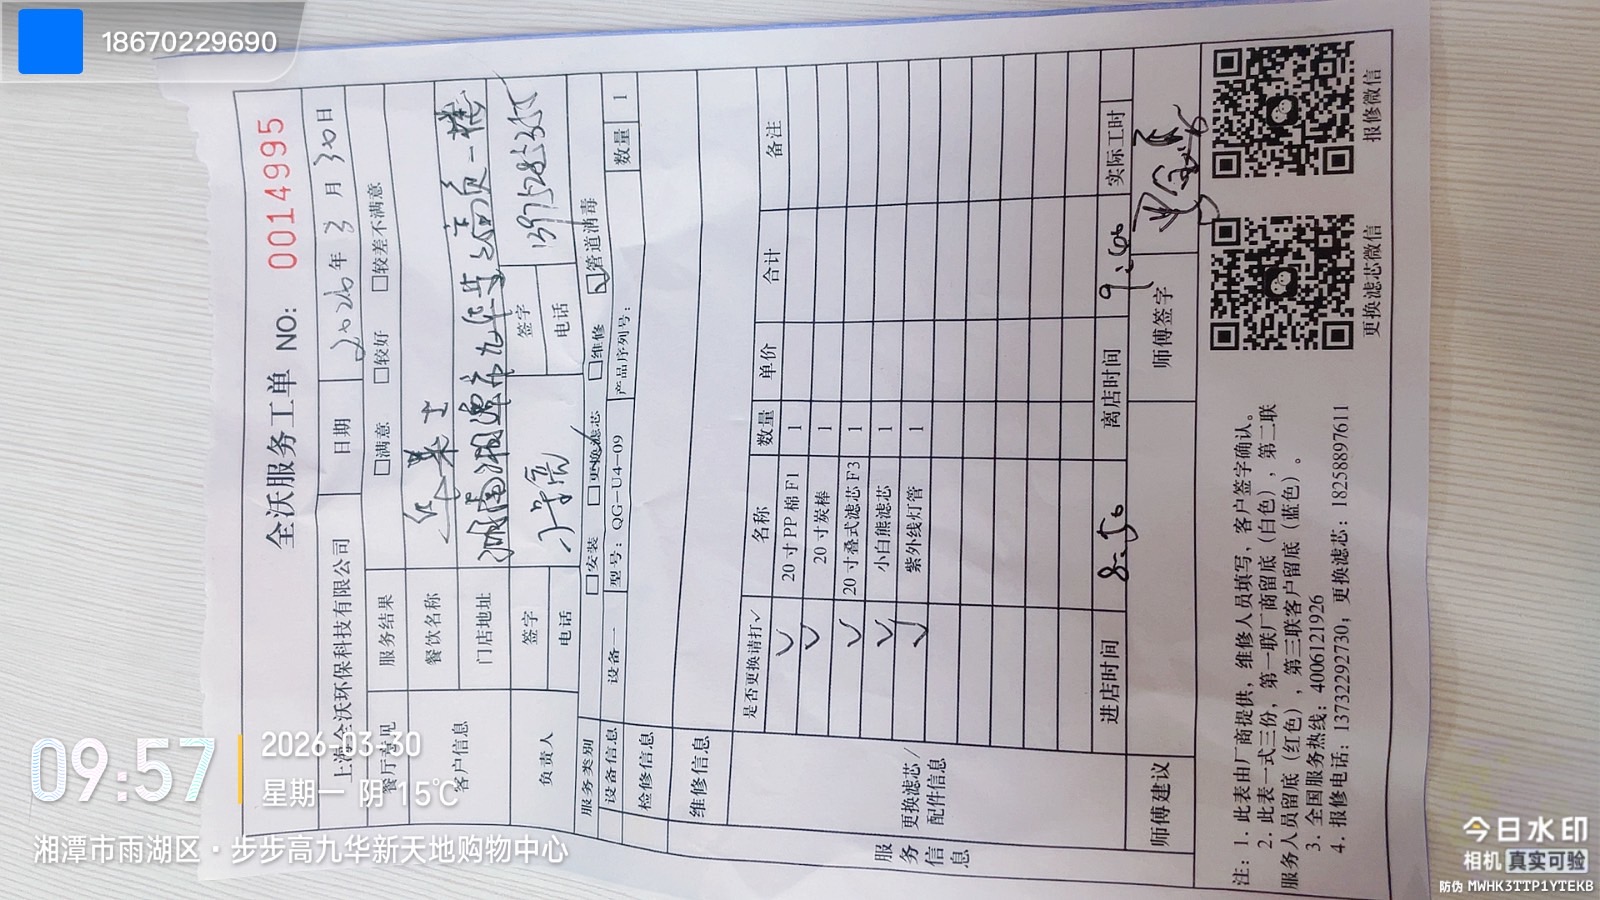 18670229690
全沃服务工单 NO: 0014995
上海全沃环保科技有限公司 日期 2026年3月30日
餐厅意见 服务结果 □满意 □较好 □较差不满意
客户信息 餐饮名称
门店地址 湖南湘潭市九华步步高负一楼
负责人 签字 签字
电话 电话
服务类别 □安装 □更换滤芯 □维修 ☑管道消毒
设备信息 设备一 型号: QG-U4-09 产品序列号: 数量 1
检修信息
维修信息
服务信息
更换滤芯/配件信息
是否更换请打✓ 名称 数量 单价 合计 备注
✓ 20寸PP棉F1 1
✓ 20寸炭棒 1
✓ 20寸叠式滤芯F3 1
✓ 小白熊滤芯 1
✓ 紫外线灯管 1
进店时间 8:50 离店时间 实际工时
师傅建议 师傅签字
注: 1. 此表由厂商提供, 维修人员填写, 客户签字确认。
2. 此表一式三份, 第一联厂商留底(白色), 第二联
服务人员留底(红色), 第三联客户留底(蓝色)。
3. 全国服务热线: 4006121926
4. 报修电话: 13732292730; 更换滤芯: 18258897611
更换滤芯微信 报修微信
09:57
2026-03-30
星期一 阴 15℃
湘潭市雨湖区·步步高九华新天地购物中心
今日水印
相机 真实可验
防伪 MWHK3TTP1YTEKB